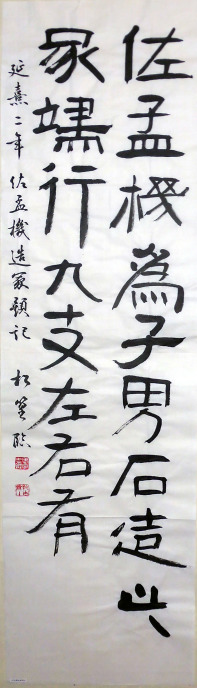 佐孟機為子男石造此
冢端行九丈左右有
延熹二年 佐孟機造冢題記 松
臨